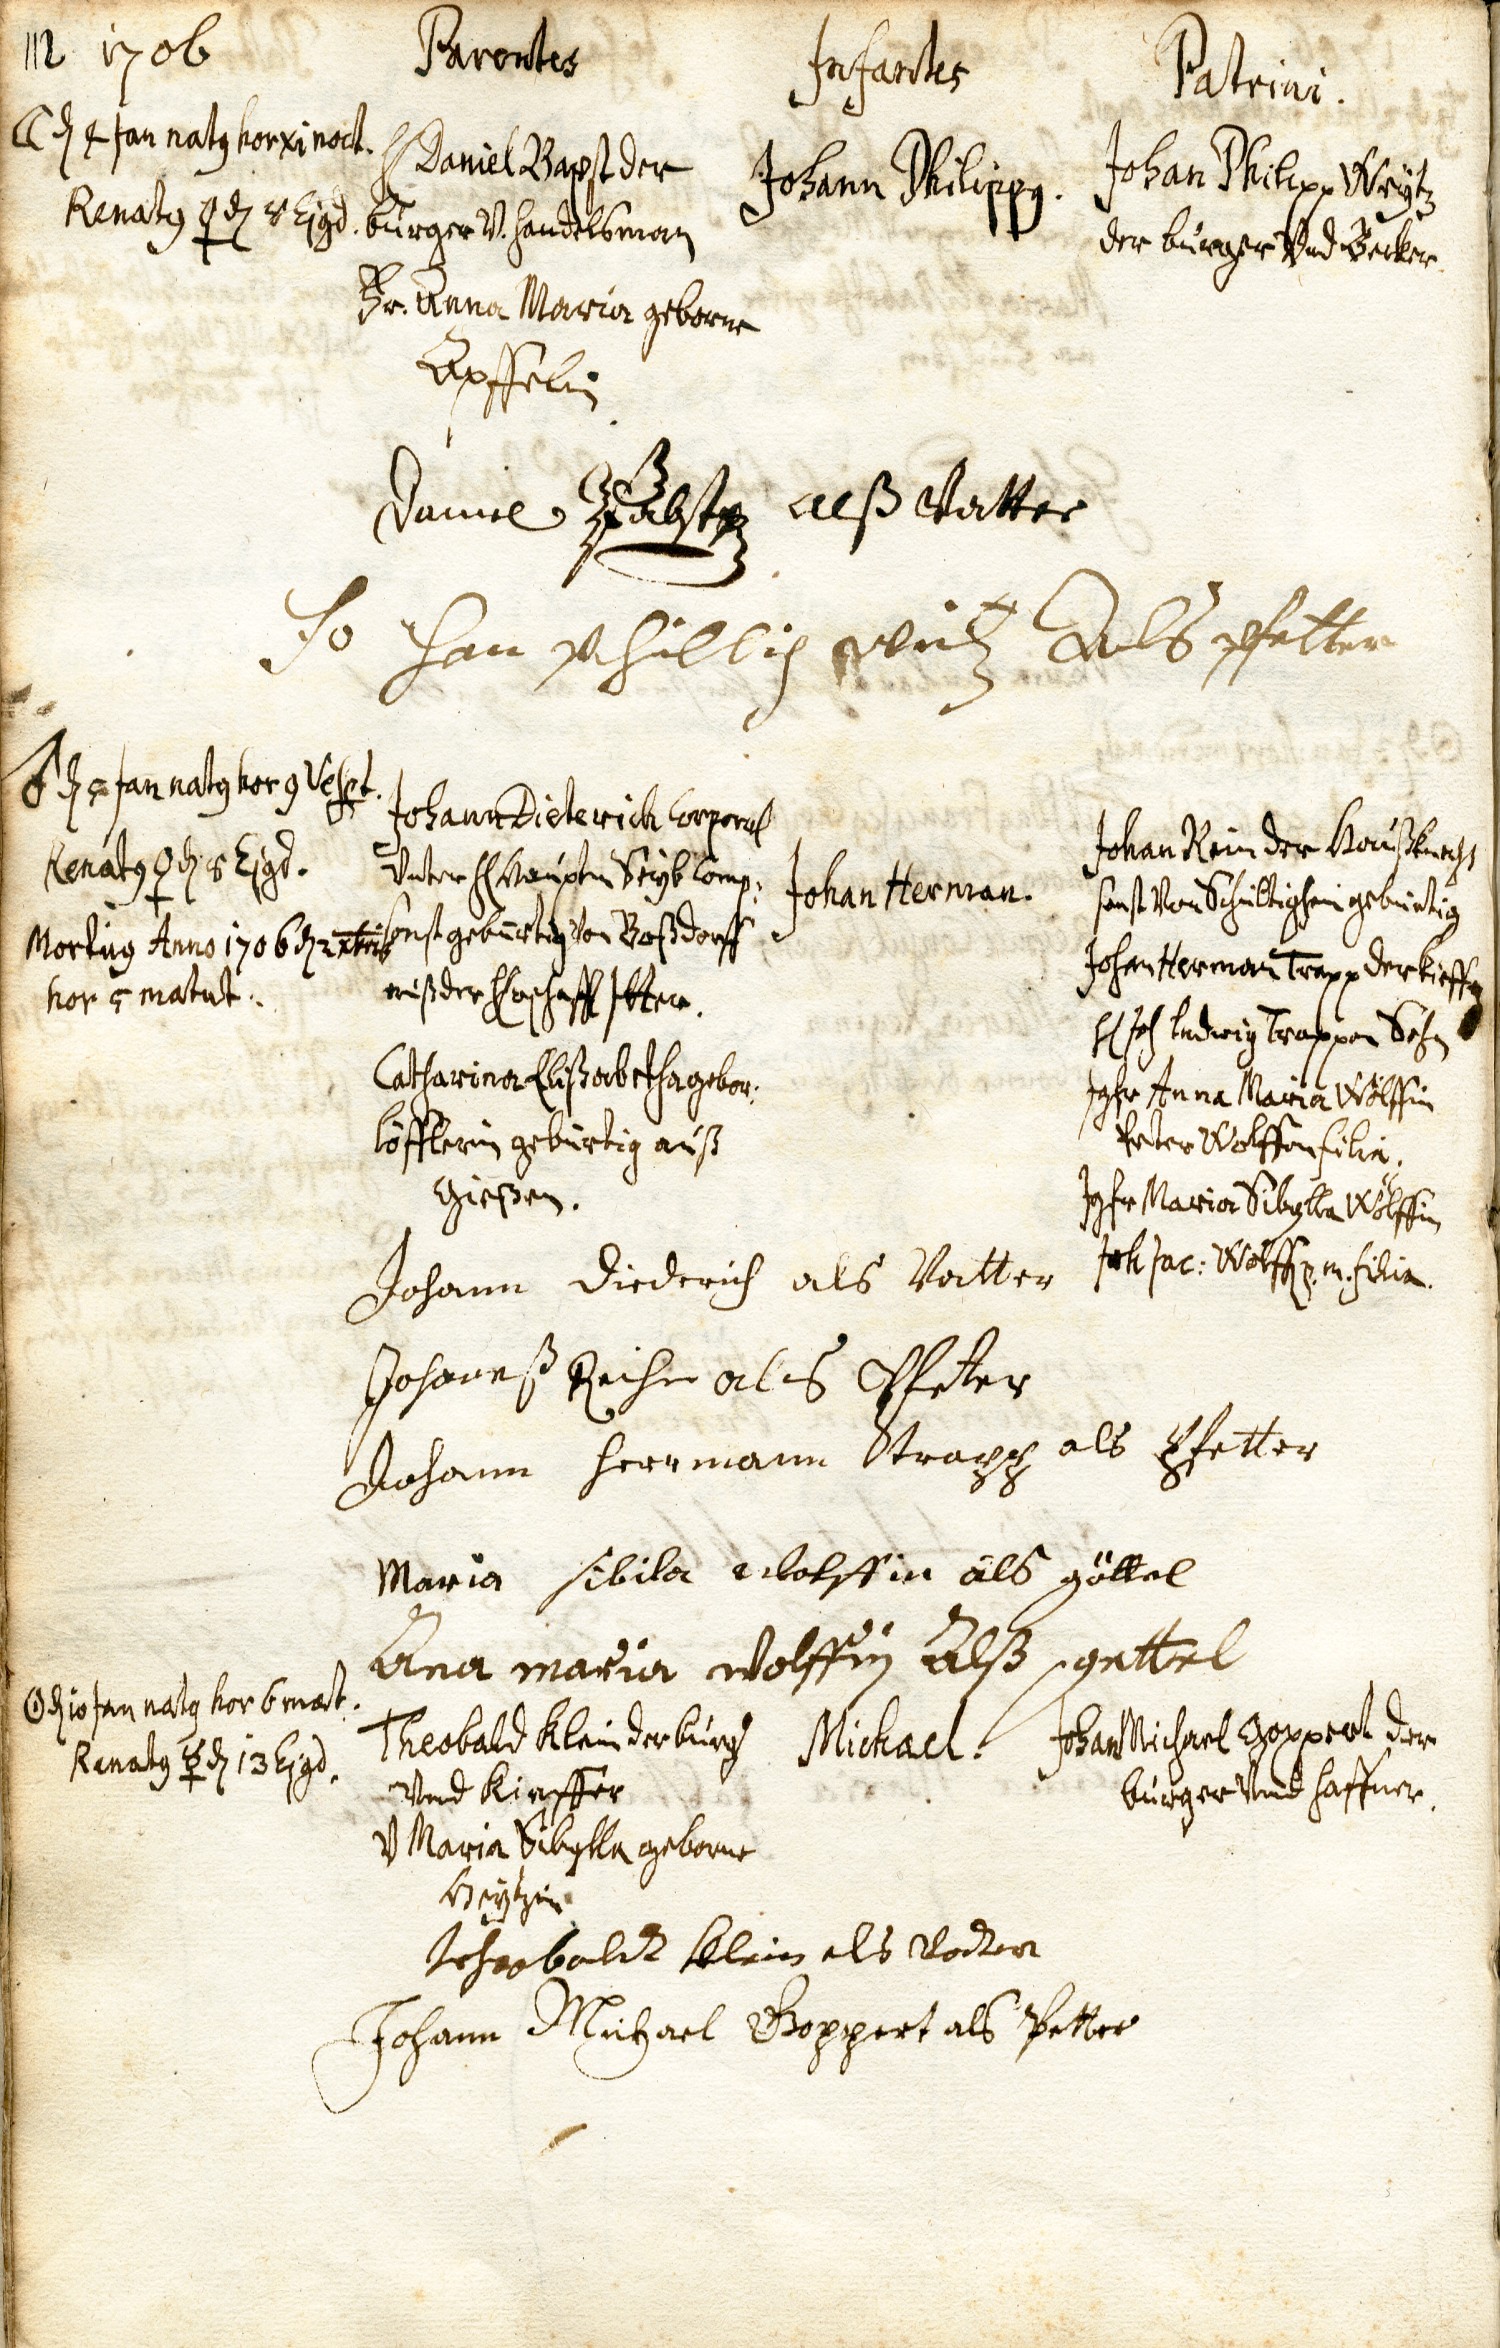 112 1706 Parentes Infantes Patrini.
☾ d 4 Jan natq hor xi noct.
Renatq ♀ d 8 Ejqd.
H Daniel Bapst der
bürger V. handelsman
Fr. Anna Maria geborne
Äpffelin
Johann Philippq.
Johan Philipp Weytz
der bürger Vnd Becker
Daniel Pabst alß Vatter
Jo han phillip witz Als pfetter
♂ d 5 Jan natq hor 9 Vespt.
Renatq ♀ d 8 Ejqd.
Mortuq Anno 1706 d 2 xbris
hor 5 matut.
Johann Dieterich Corporal
Vnter H Hauptm Seyb Comp:
sonst gebürtig von Boßdorff
auß der Herschafft Itter.
Catharina Elisabetha gebor:
Löfflerin gebürtig auß
Gießen.
Johan Herman.
Johan Rein der Haußknecht
sonst Von Schiltigheim gebürtig
Johan Herman Trapp der kieffer
H Joh Ludwig Trappen Sohn
Jgfr Anna Maria Wölffin
Peter Wolffen filia.
Jgfr Maria Sibylla Wölffin
Joh Jac: Wolff p. m. filia.
Johann Diederich als Vatter
Johaneß Reihn als Pfetter
Johann Herrmann Trapp als Pfetter
Maria sibila wolffin als göttel
Ana maria wolffin Alß gettel
☉ d 10 Jan natq hor 6 mat.
Renatq ☿ d 13 Ejqd.
Theobald Klein der bürg
Vnd Kieffer
V Maria Sibylla geborne
Heytzin
Michael.
Johan Michael Goppert der
bürger Vnd haffner.
Tehobaldt Klein als Vatter
Johann Michael Goppert als Petter